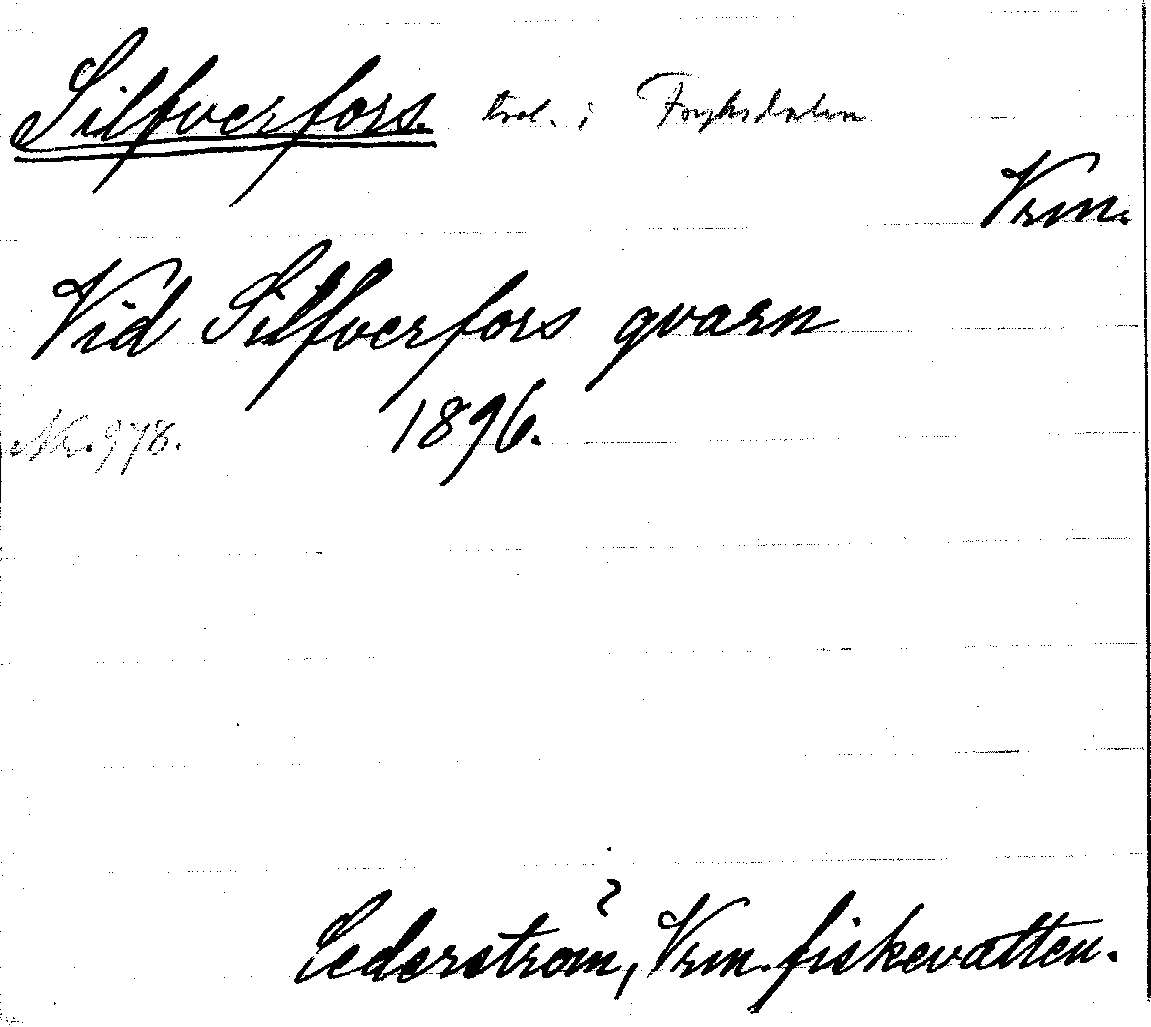 Silfverfors. trol. i Fryksdalen
Vrm.
Vid Silfverfors qvarn
Nr. 978. 1896.
Cederström, Vrm. fiskevatten.